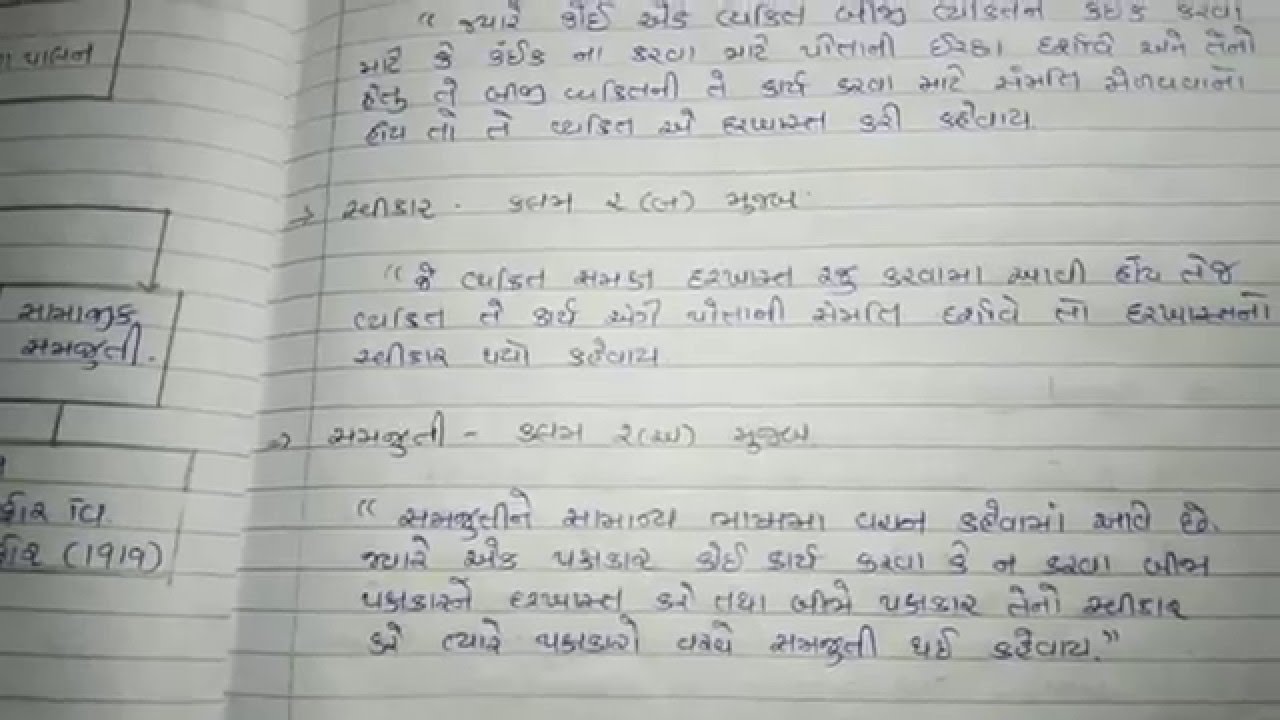 પાલન
સામાજીક
સમજુતી.
(1919)
“ જ્યારે કોઈ એક વ્યકિત બીજી વ્યકિતને કંઇક કરવા
માટે કે કંઈક ના કરવા માટે પોતાની ઈચ્છા દર્શાવે અને તેનો
હેતુ તે બીજી વ્યકિતની તે કાર્ય કરવા માટે સંમતિ મેળવવાનો
હોય તો તે વ્યકિત એ દરખાસ્ત કરી કહેવાય.
→ સ્વીકાર - કલમ ૨ (બ) મુજબ
“ જે વ્યકિત સમક્ષ દરખાસ્ત રજુ કરવામા આવી હોય તેજ
વ્યકિત તે કાર્ય અંગે પોતાની સંમતિ દર્શાવે તો દરખાસ્તનો
સ્વીકાર થયો કહેવાય.
→ સમજુતી - કલમ ૨(અ) મુજબ
“ સમજુતીને સામાન્ય ભાષામા વચન કહેવામાં આવે છે.
જ્યારે એક પક્ષકાર કોઈ કાર્ય કરવા કે ન કરવા બીજા
પક્ષકારને દરખાસ્ત કરે તથા બીજો પક્ષકાર તેનો સ્વીકાર
કરે ત્યારે પક્ષકારો વચ્ચે સમજુતી થઈ કહેવાય.”